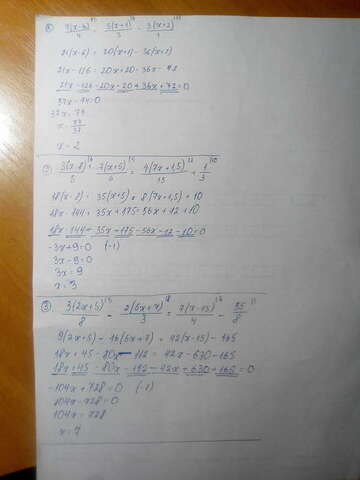 7(x-6)/4 5(x+1)/3 3(x+2)/1
21(x-6) = 20(x+1) - 36(x+2)
21x-126 = 20x+20-36x-72
21x-126-20x-20+36x+72=0
37x-74=0
37x=74
x=2
② 3(x-8)/5 7(x+5)/6 4(7x+1,5)/15 + 1/3
18(x-8) - 35(x+5) = 8(7x+1,5) + 10
18x-144-35x+175=56x+12+10
18x-144+35x+175-56x-12-10=0
-3x+9=0 (-1)
3x-9=0
3x=9
x=3
③ 3(2x+5)/8 - 2(5x+7)/3 = 7(x-15)/4 - 55/8
9(2x+5) - 16(5x+7) = 42(x-15) - 165
18x+45-80x-112 = 42x-630-165
18x+45-80x-112-42x+630+165=0
-104x+728=0 (-1)
104x-728=0
104x=728
x=7